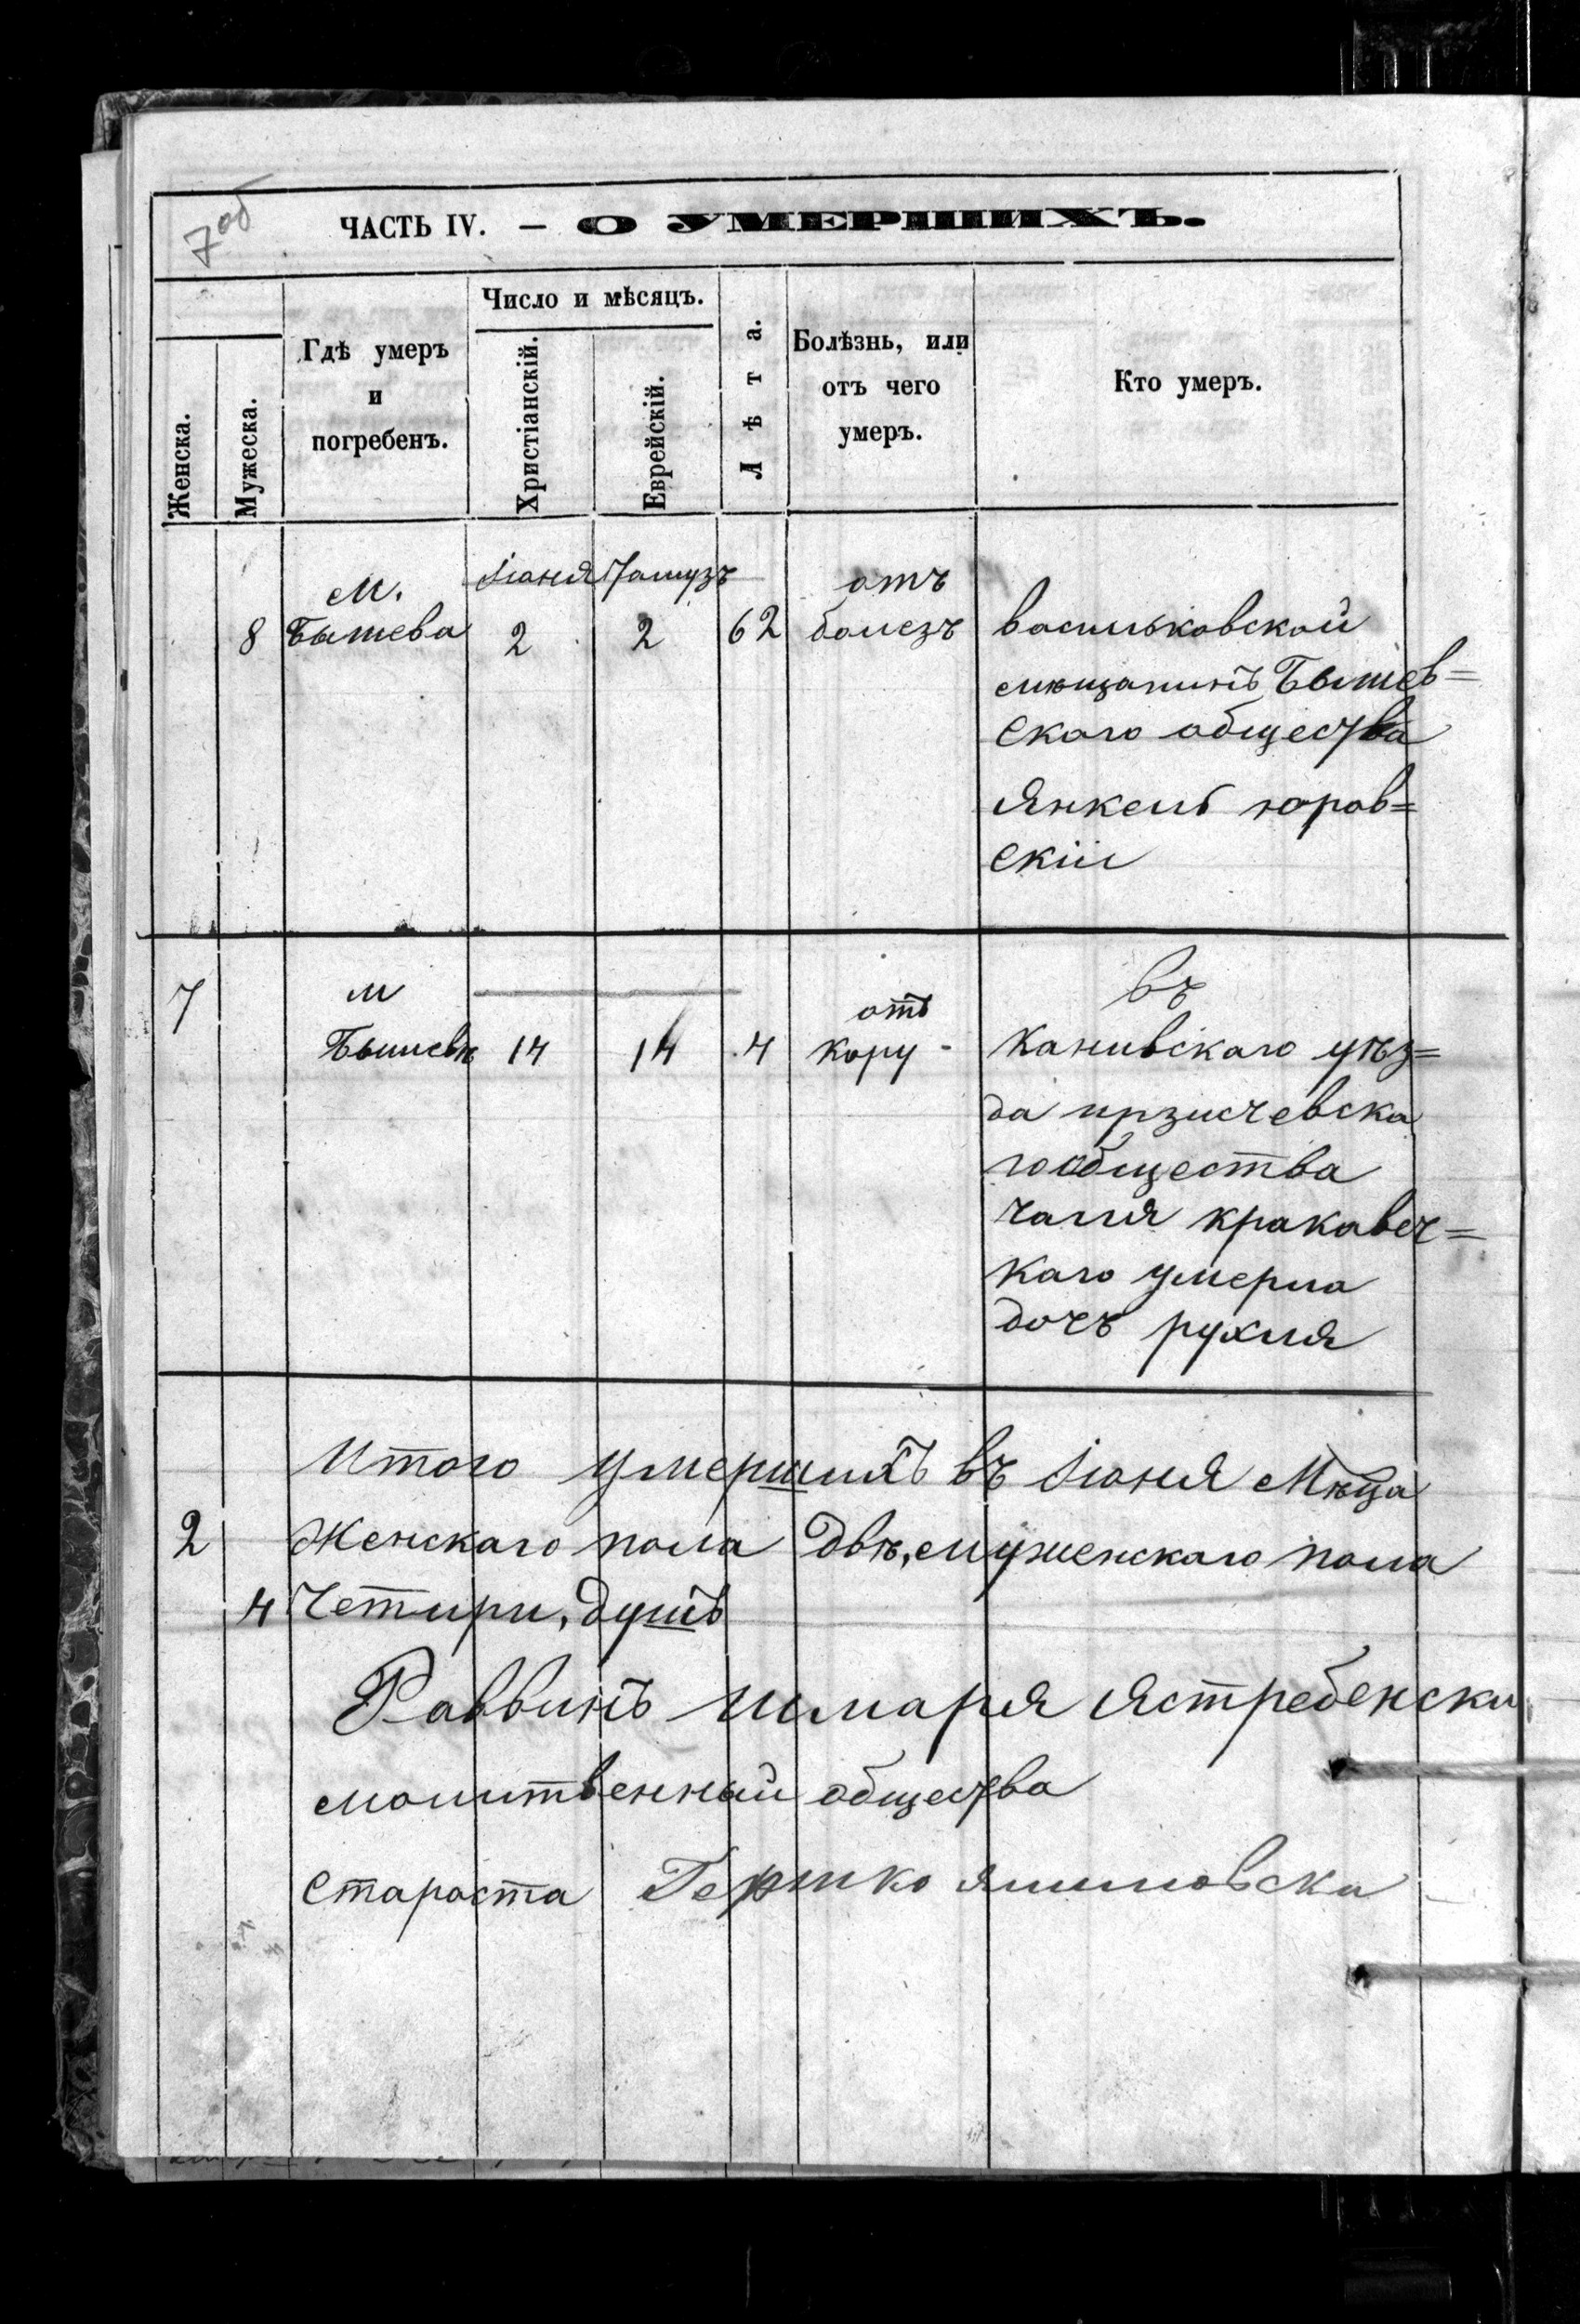 7об
ЧАСТЬ IV. — О УМЕРШИХЪ.
Женска.
Мужеска.
Гдѣ умеръ
и
погребенъ.
Число и мѣсяцъ.
Христіанскій.
Еврейскій.
Лѣта.
Болѣзнь, или
отъ чего
умеръ.
Кто умеръ.
Іюня Тамузъ
М. отъ
8 Бышева 2 2 62 болезъ васильковской
мѣщанинъ Бышев=
скаго общества
Янкель юров=
скій
7 м отъ въ
Бышевѣ 14 14 4 кору - Каневскаго уѣз=
да
гообщества
кракавец=
каго умерла
дочъ рухля
Итого умершихъ въ Іюня Мѣца
2 Женскаго пола двѣ, мужескаго пола
4 Четири, душъ
Раввинъ Шмарія Ястребенски
молитвенный общества
Староста Гершко